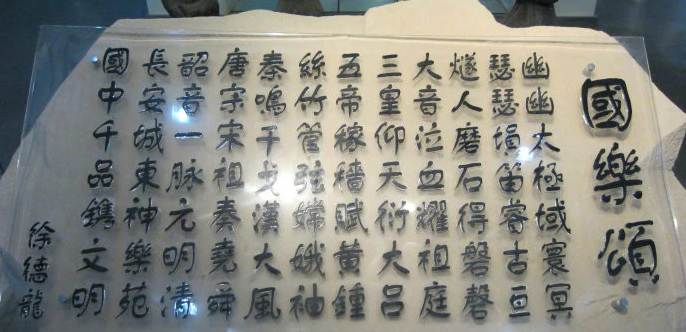 國樂頌
幽幽太極域寰冥
瑟瑟塤笛睿古亘
燧人磨石得磬磬
大音泣血耀祖庭
三皇仰天衍大呂
五帝稼穡賦黃鍾
絲竹管弦嫦娥袖
秦鳴干戈漢大風
唐宗宋祖奏堯舜
韶音一脈元明清
長安城東神樂苑
國中千品鐫文明
徐德龍